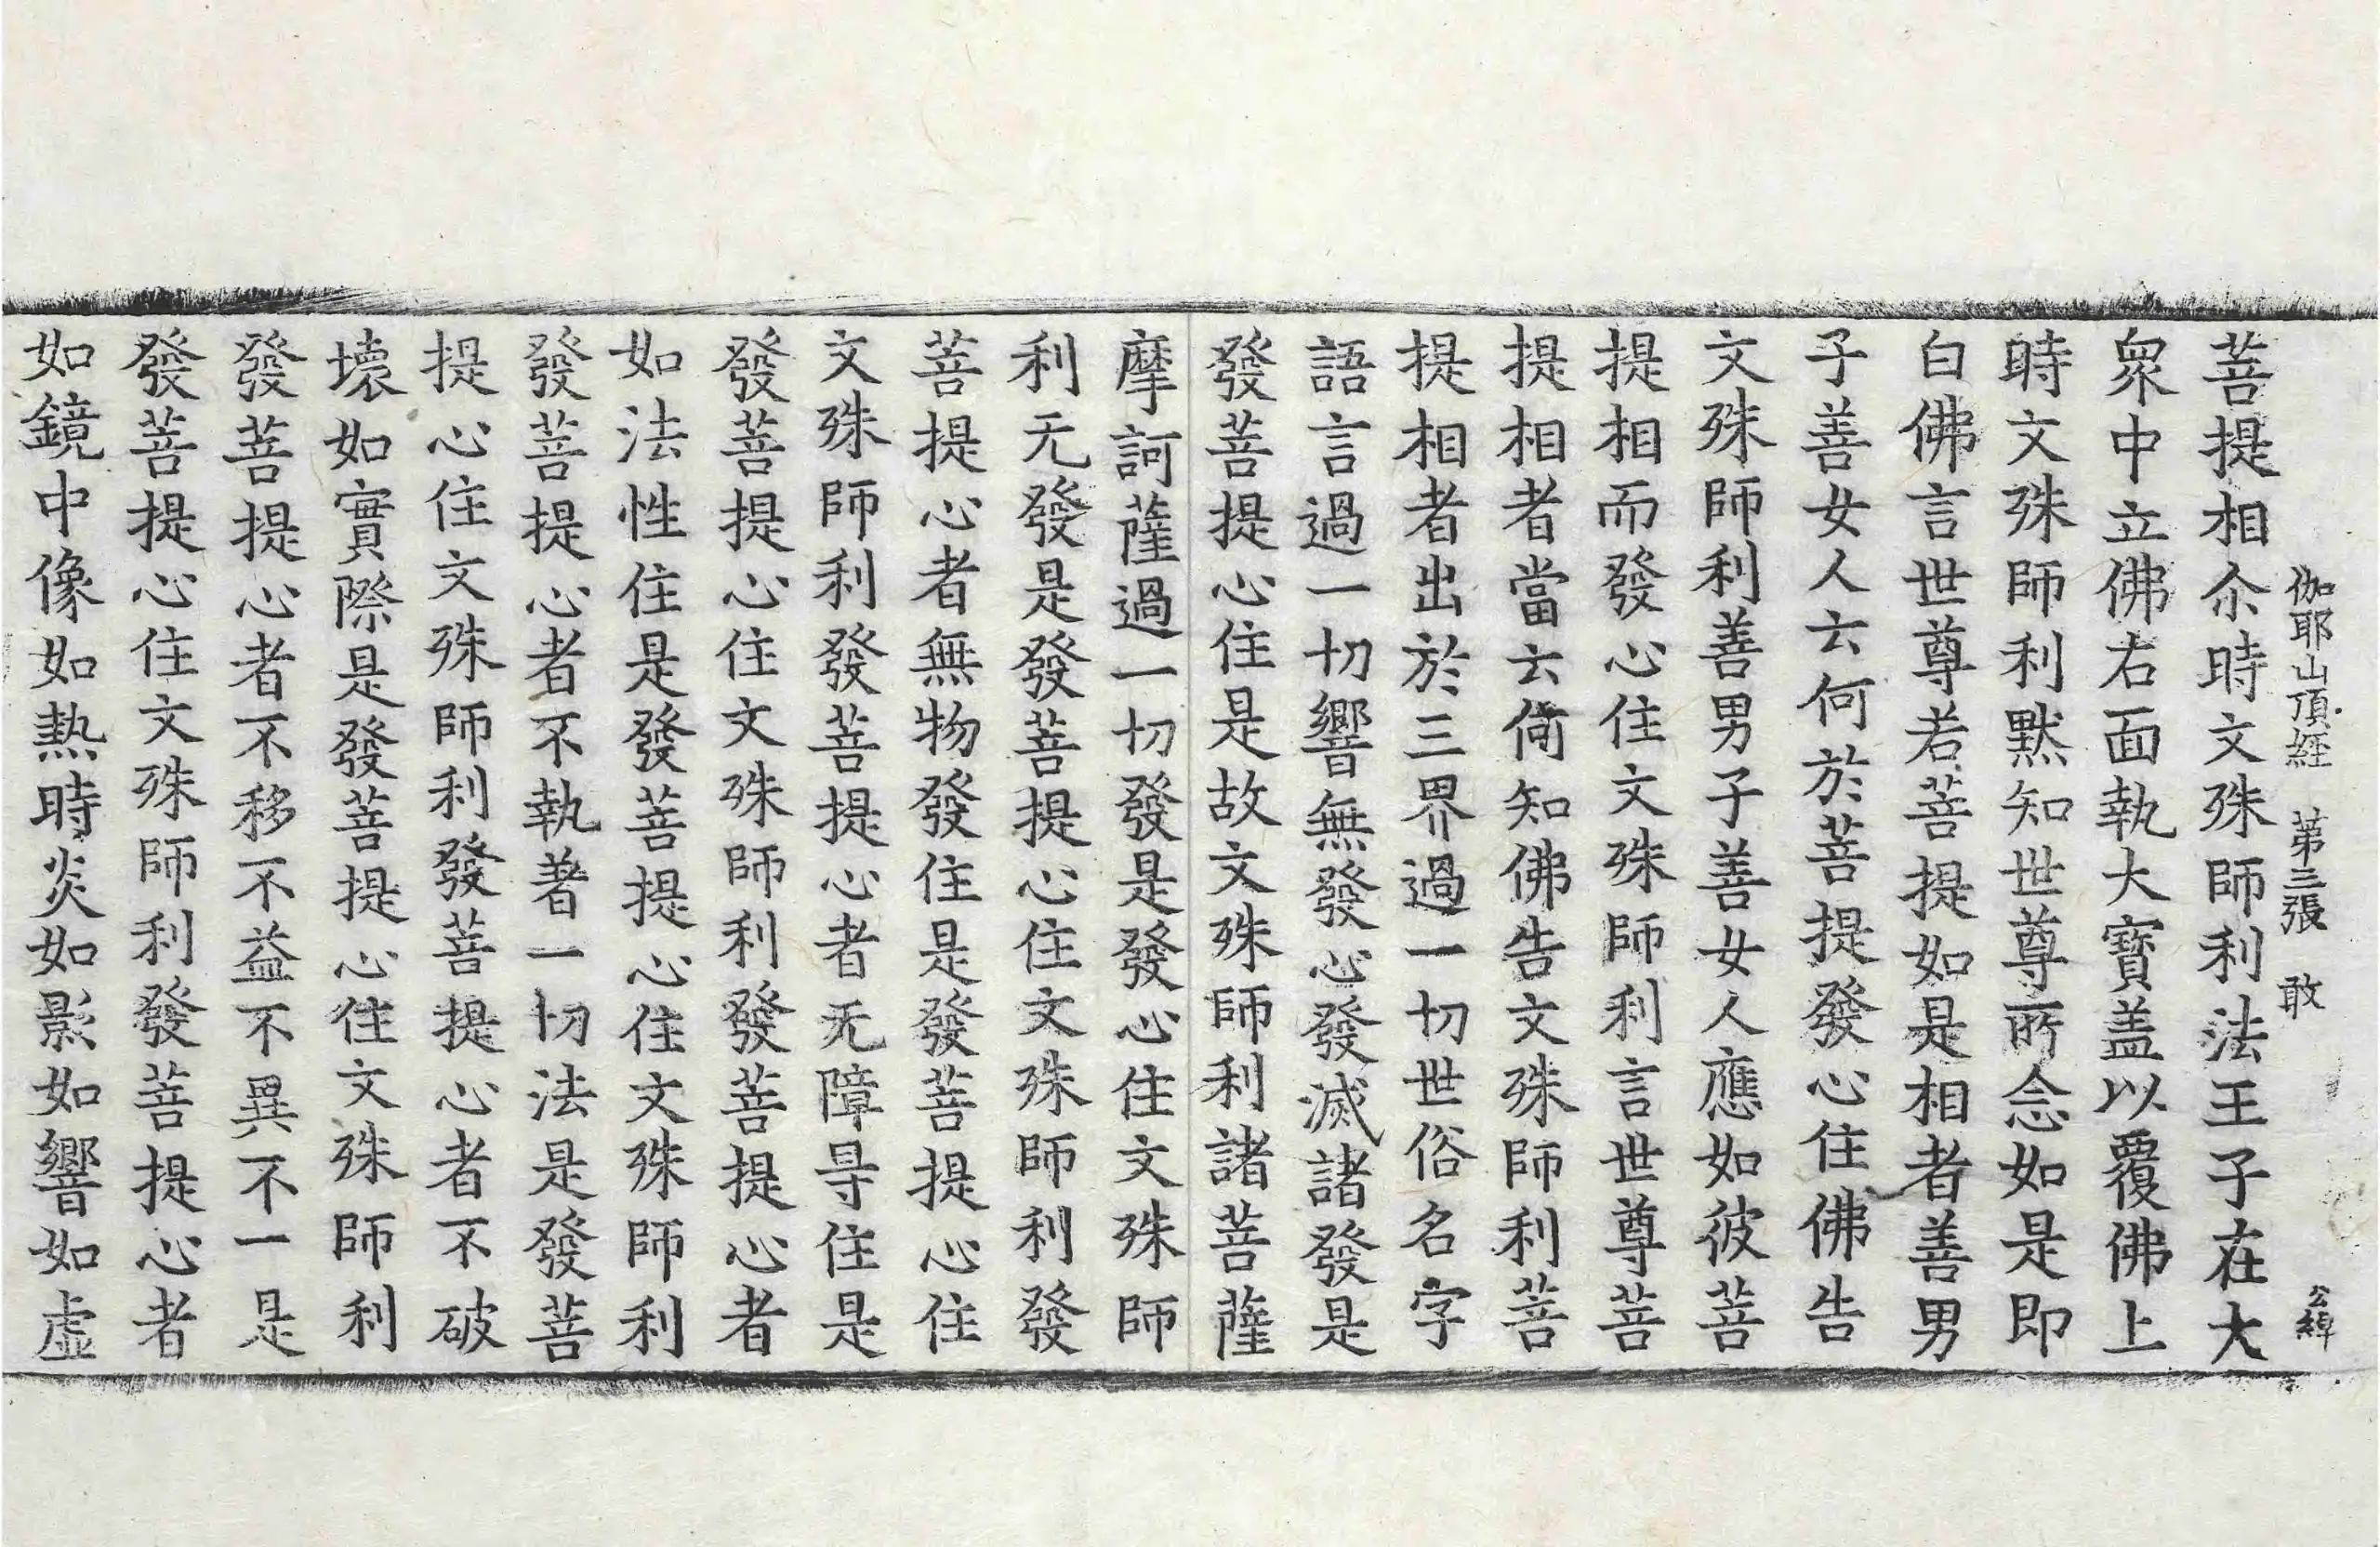 伽耶山頂経 第三張 敢 公緯
菩提相尒時文殊師利法王子在大
衆中立佛右面執大寶盖以覆佛上
時文殊師利默知世尊所念如是即
白佛言世尊若菩提如是相者善男
子善女人云何於菩提發心住佛告
文殊師利善男子善女人應如彼菩
提相而發心住文殊師利言世尊菩
提相者當云何知佛告文殊師利菩
提相者出於三界過一切世俗名字
語言過一切響無發心發滅諸發是
發菩提心住是故文殊師利諸菩薩
摩訶薩過一切發是發心住文殊師
利无發是發菩提心住文殊師利發
菩提心者無物發住是發菩提心住
文殊師利發菩提心者无障㝵住是
發菩提心住文殊師利發菩提心者
如法性住是發菩提心住文殊師利
發菩提心者不執著一切法是發菩
提心住文殊師利發菩提心者不破
壞如實際是發菩提心住文殊師利
發菩提心者不移不益不異不一是
發菩提心住文殊師利發菩提心者
如鏡中像如熱時炎如影如響如虛